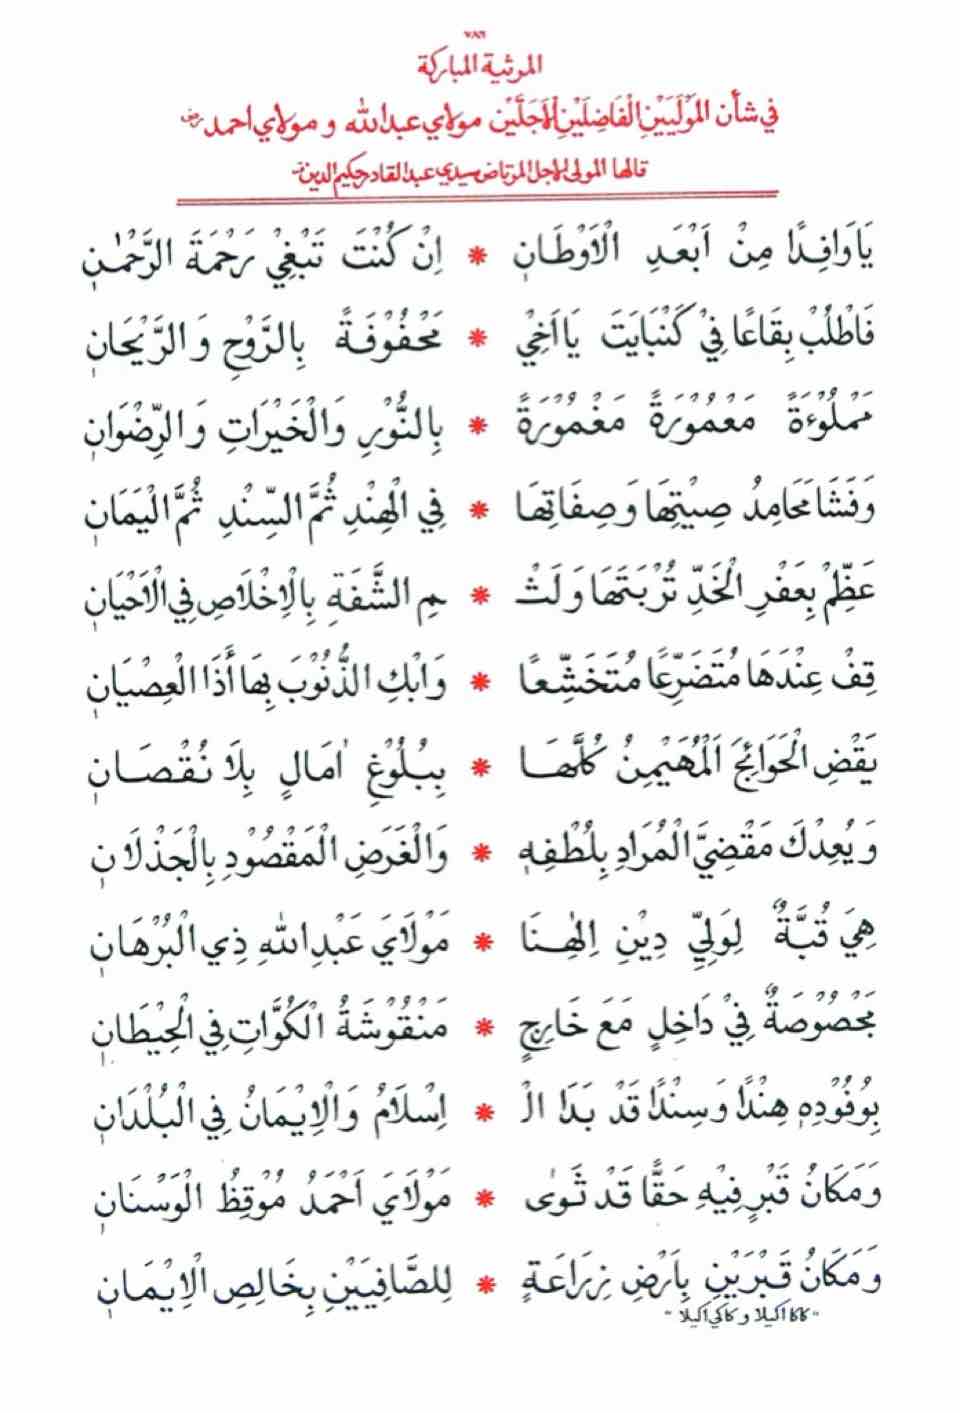 ٧٨٦
المرثية المباركة
في شأن المَوْلَيَيْنِ الْفَاضِلَيْنِ الْأَجَلَّيْنِ مولاي عبد الله و مولاي احمد رض
قالها المولى الاجل المرتاض سيدي عبد القادر حكيم الدين
يَا وَافِدًا مِنْ اَبْعَدِ الْاَوْطَانِ * اِنْ كُنْتَ تَبْغِيْ رَحْمَةَ الرَّحْمٰنِ
فَاطْلُبْ بِقَاعًا فِيْ كَنْبَايَتَ يَا اَخِيْ * مَحْفُوْفَةً بِالرَّوْحِ وَالرَّيْحَانِ
مَمْلُوْءَةً مَعْمُوْرَةً مَغْمُوْرَةً * بِالنُّوْرِ وَالْخَيْرَاتِ وَالرِّضْوَانِ
وَفَشَا مَحَامِدُ صِيْتِهَا وَصِفَاتِهَا * فِي الْهِنْدِ ثُمَّ السِّنْدِ ثُمَّ الْيَمَانِ
عَظِّمْ بِعَفْرِ الْخَدِّ تُرْبَتَهَا وَلَثْ * مِ الشَّفَةِ بِالْاِخْلَاصِ فِي الْاَحْيَانِ
قِفْ عِنْدَهَا مُتَضَرِّعًا مُتَخَشِّعًا * وَابْكِ الذُّنُوْبَ بِهَا أَذَا الْعِصْيَانِ
يَقْضِ الْحَوَائِجَ اَلْمُهَيْمِنُ كُلَّهَا * بِبُلُوْغِ اٰمَالٍ بِلَا نُقْصَانِ
وَيُعِدْكَ مَقْضِيَّ الْمُرَادِ بِلُطْفِهٖ * وَالْغَرَضِ الْمَقْصُوْدِ بِالْجَذْلَانِ
هِيَ قُبَّةٌ لِوَلِيِّ دِيْنِ اِلٰهِنَا * مَوْلَايَ عَبْدِ اللهِ ذِي الْبُرْهَانِ
مَجْصُوْصَةٌ فِيْ دَاخِلٍ مَعَ خَارِجٍ * مَنْقُوْشَةُ الْكُوَّاتِ فِي الْحِيْطَانِ
بِوُفُوْدِهٖ هِنْدًا وَسِنْدًا قَدْ بَدَا الْ * اِسْلَامُ وَالْاِيْمَانُ فِي الْبُلْدَانِ
وَمَكَانُ قَبْرٍ فِيْهِ حَقًّا قَدْ ثَوٰى * مَوْلَايَ اَحْمَدُ مُوْقِظُ الْوَسْنَانِ
وَمَكَانُ قَبْرَيْنِ بِاَرْضِ زِرَاعَةٍ * لِلصَّافِيَيْنِ بِخَالِصِ الْاِيْمَانِ
"كاكا اكيلا و كاكي اكيلا"